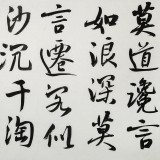 莫道讒言
如浪深莫
言遷客似
沙沉千淘